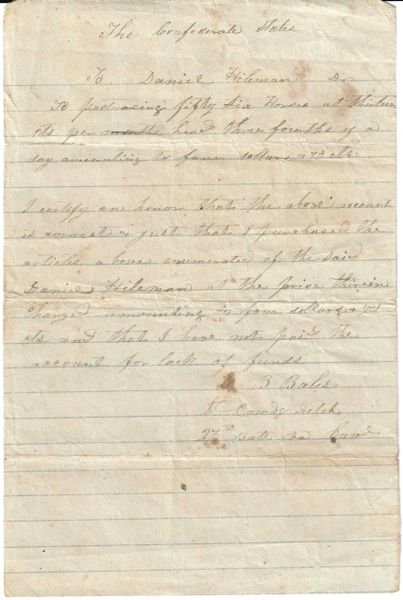 The Confederate States
To Daniel Hileman Dr
To pasturing fifty six Horses at thirteen
cts per month head three fourths of a
day amounting to four dollars &
I certify on honor that the above account
is correct & just that I purchased the
articles above enumerated of the said
Daniel Hileman at the price therein
charged amounting to four dollars &
cts and that I have not paid the
account for lack of funds
B Bales
Lt Comdg
27th Batt Va Cav